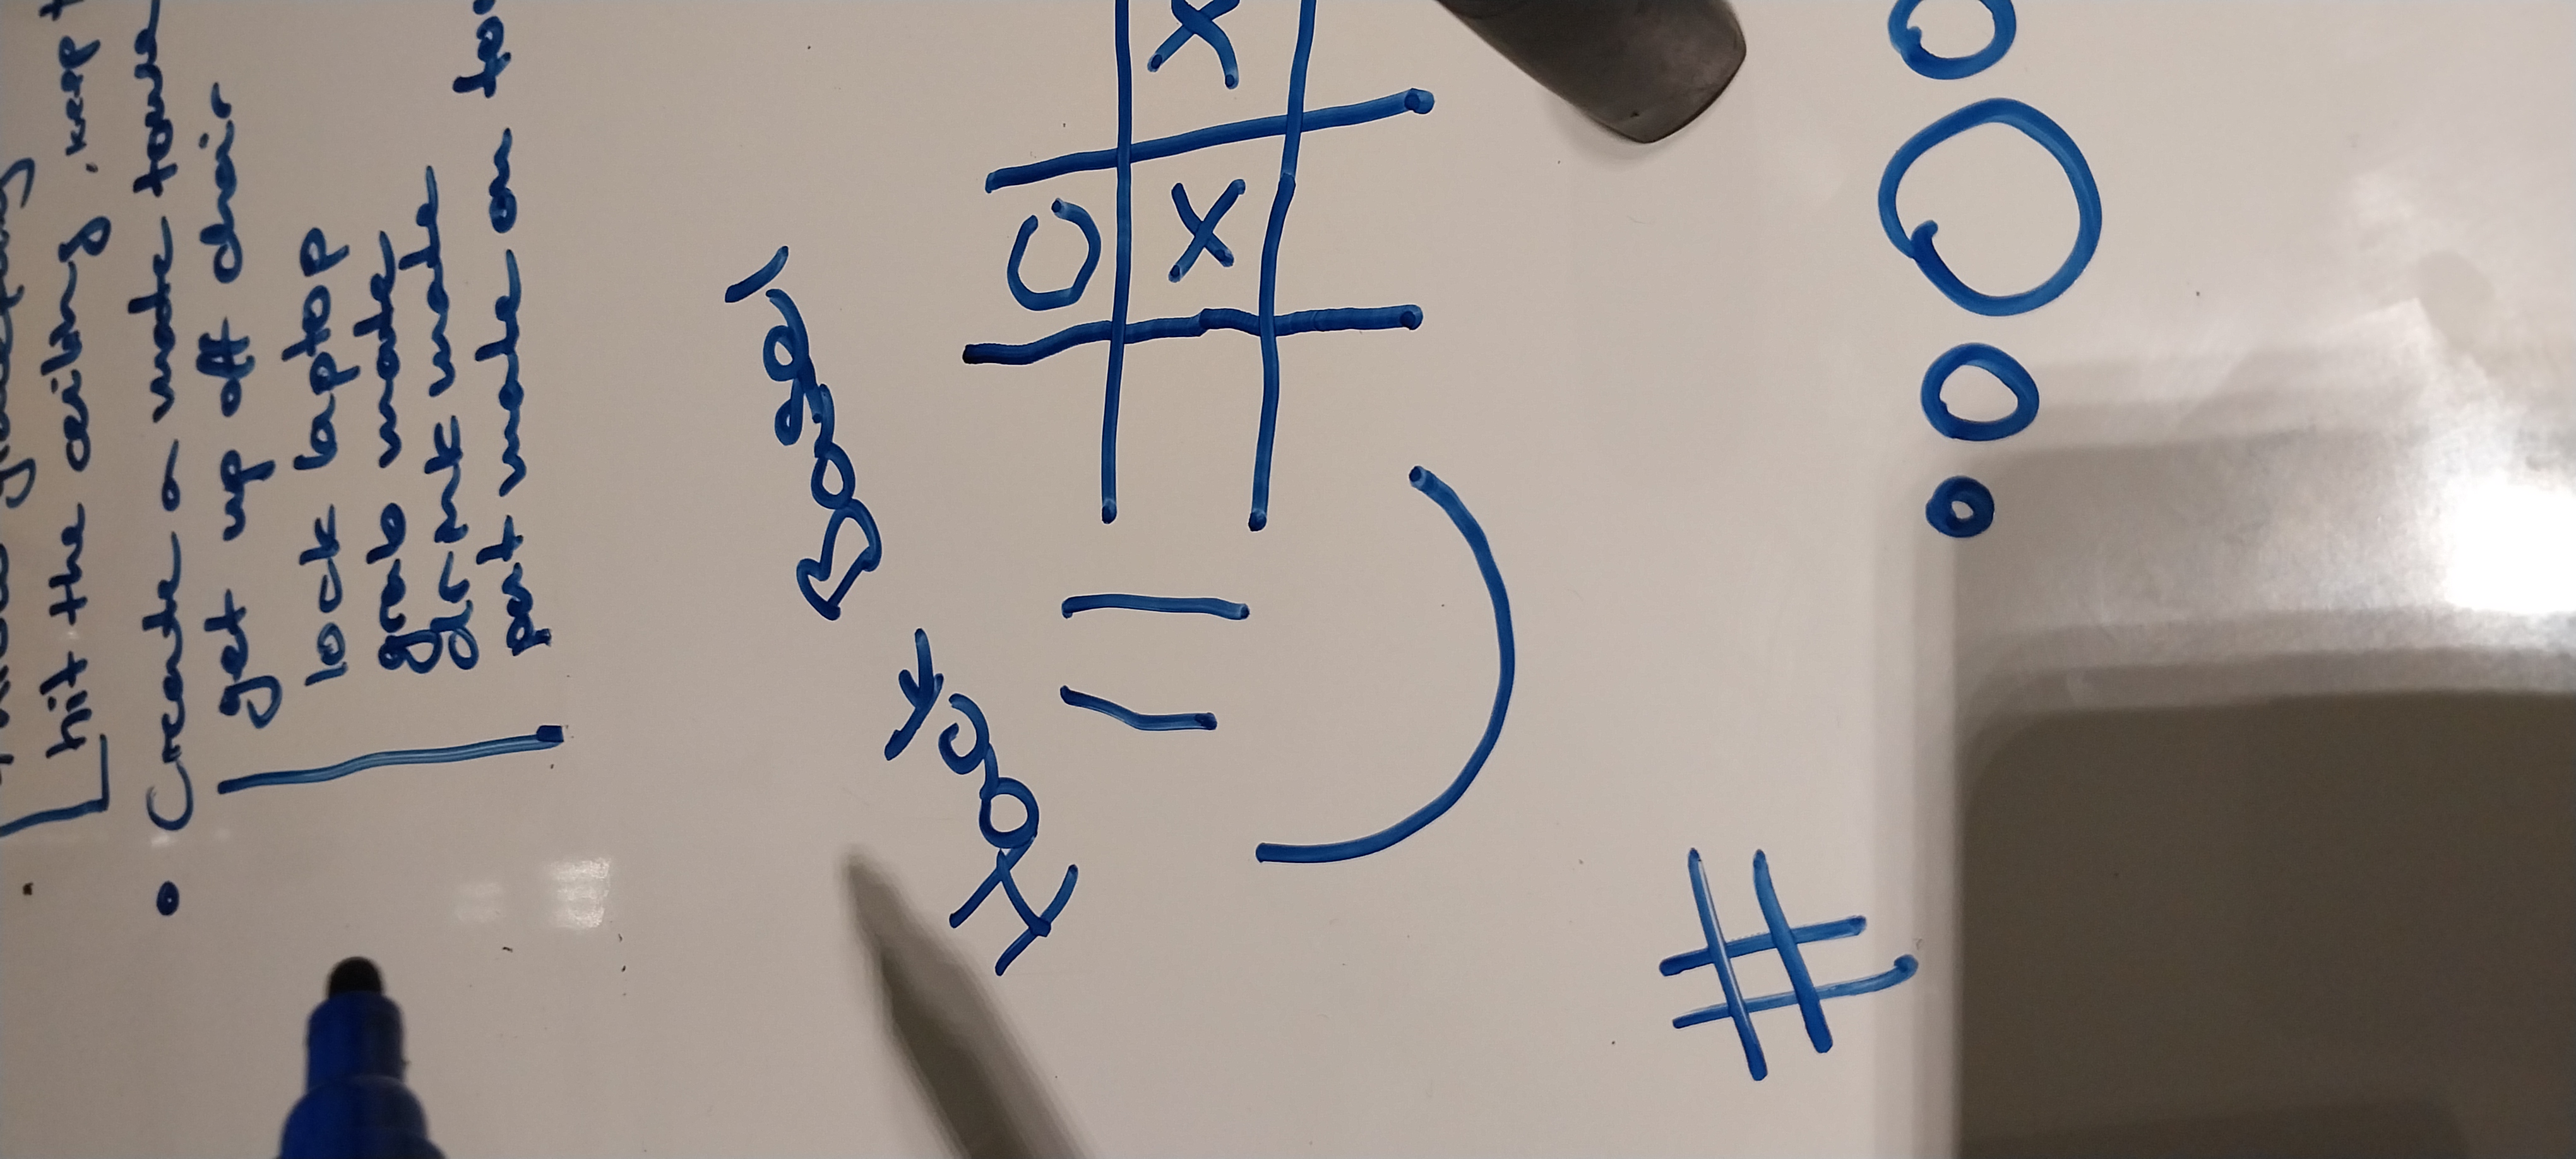 hit the ceiling, keep
• Create a mate
get up off chair
lock laptop
grab mate
drink mate
put mate on
Hack Basel
C
X X
#